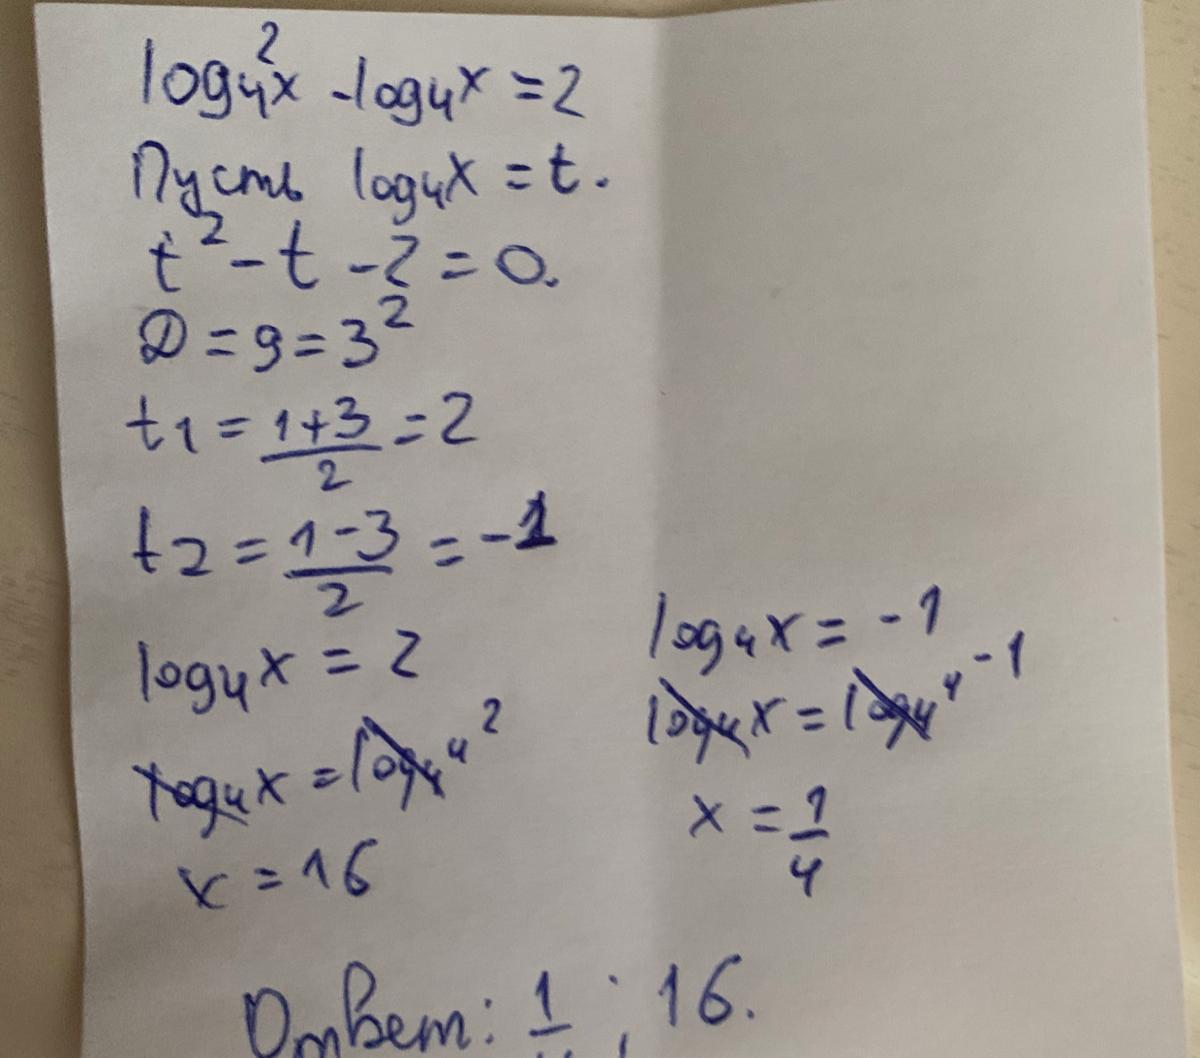 log₄²x - log₄x = 2
Пусть log₄x = t.
t² - t - 2 = 0.
D = 9 = 3²
t₁ = (1+3)/2 = 2
t₂ = (1-3)/2 = -1
log₄x = 2
log₄x = log₄4²
x = 16
log₄x = -1
log₄x = log₄4⁻¹
x = 1/4
Ответ: 1/4 ; 16.